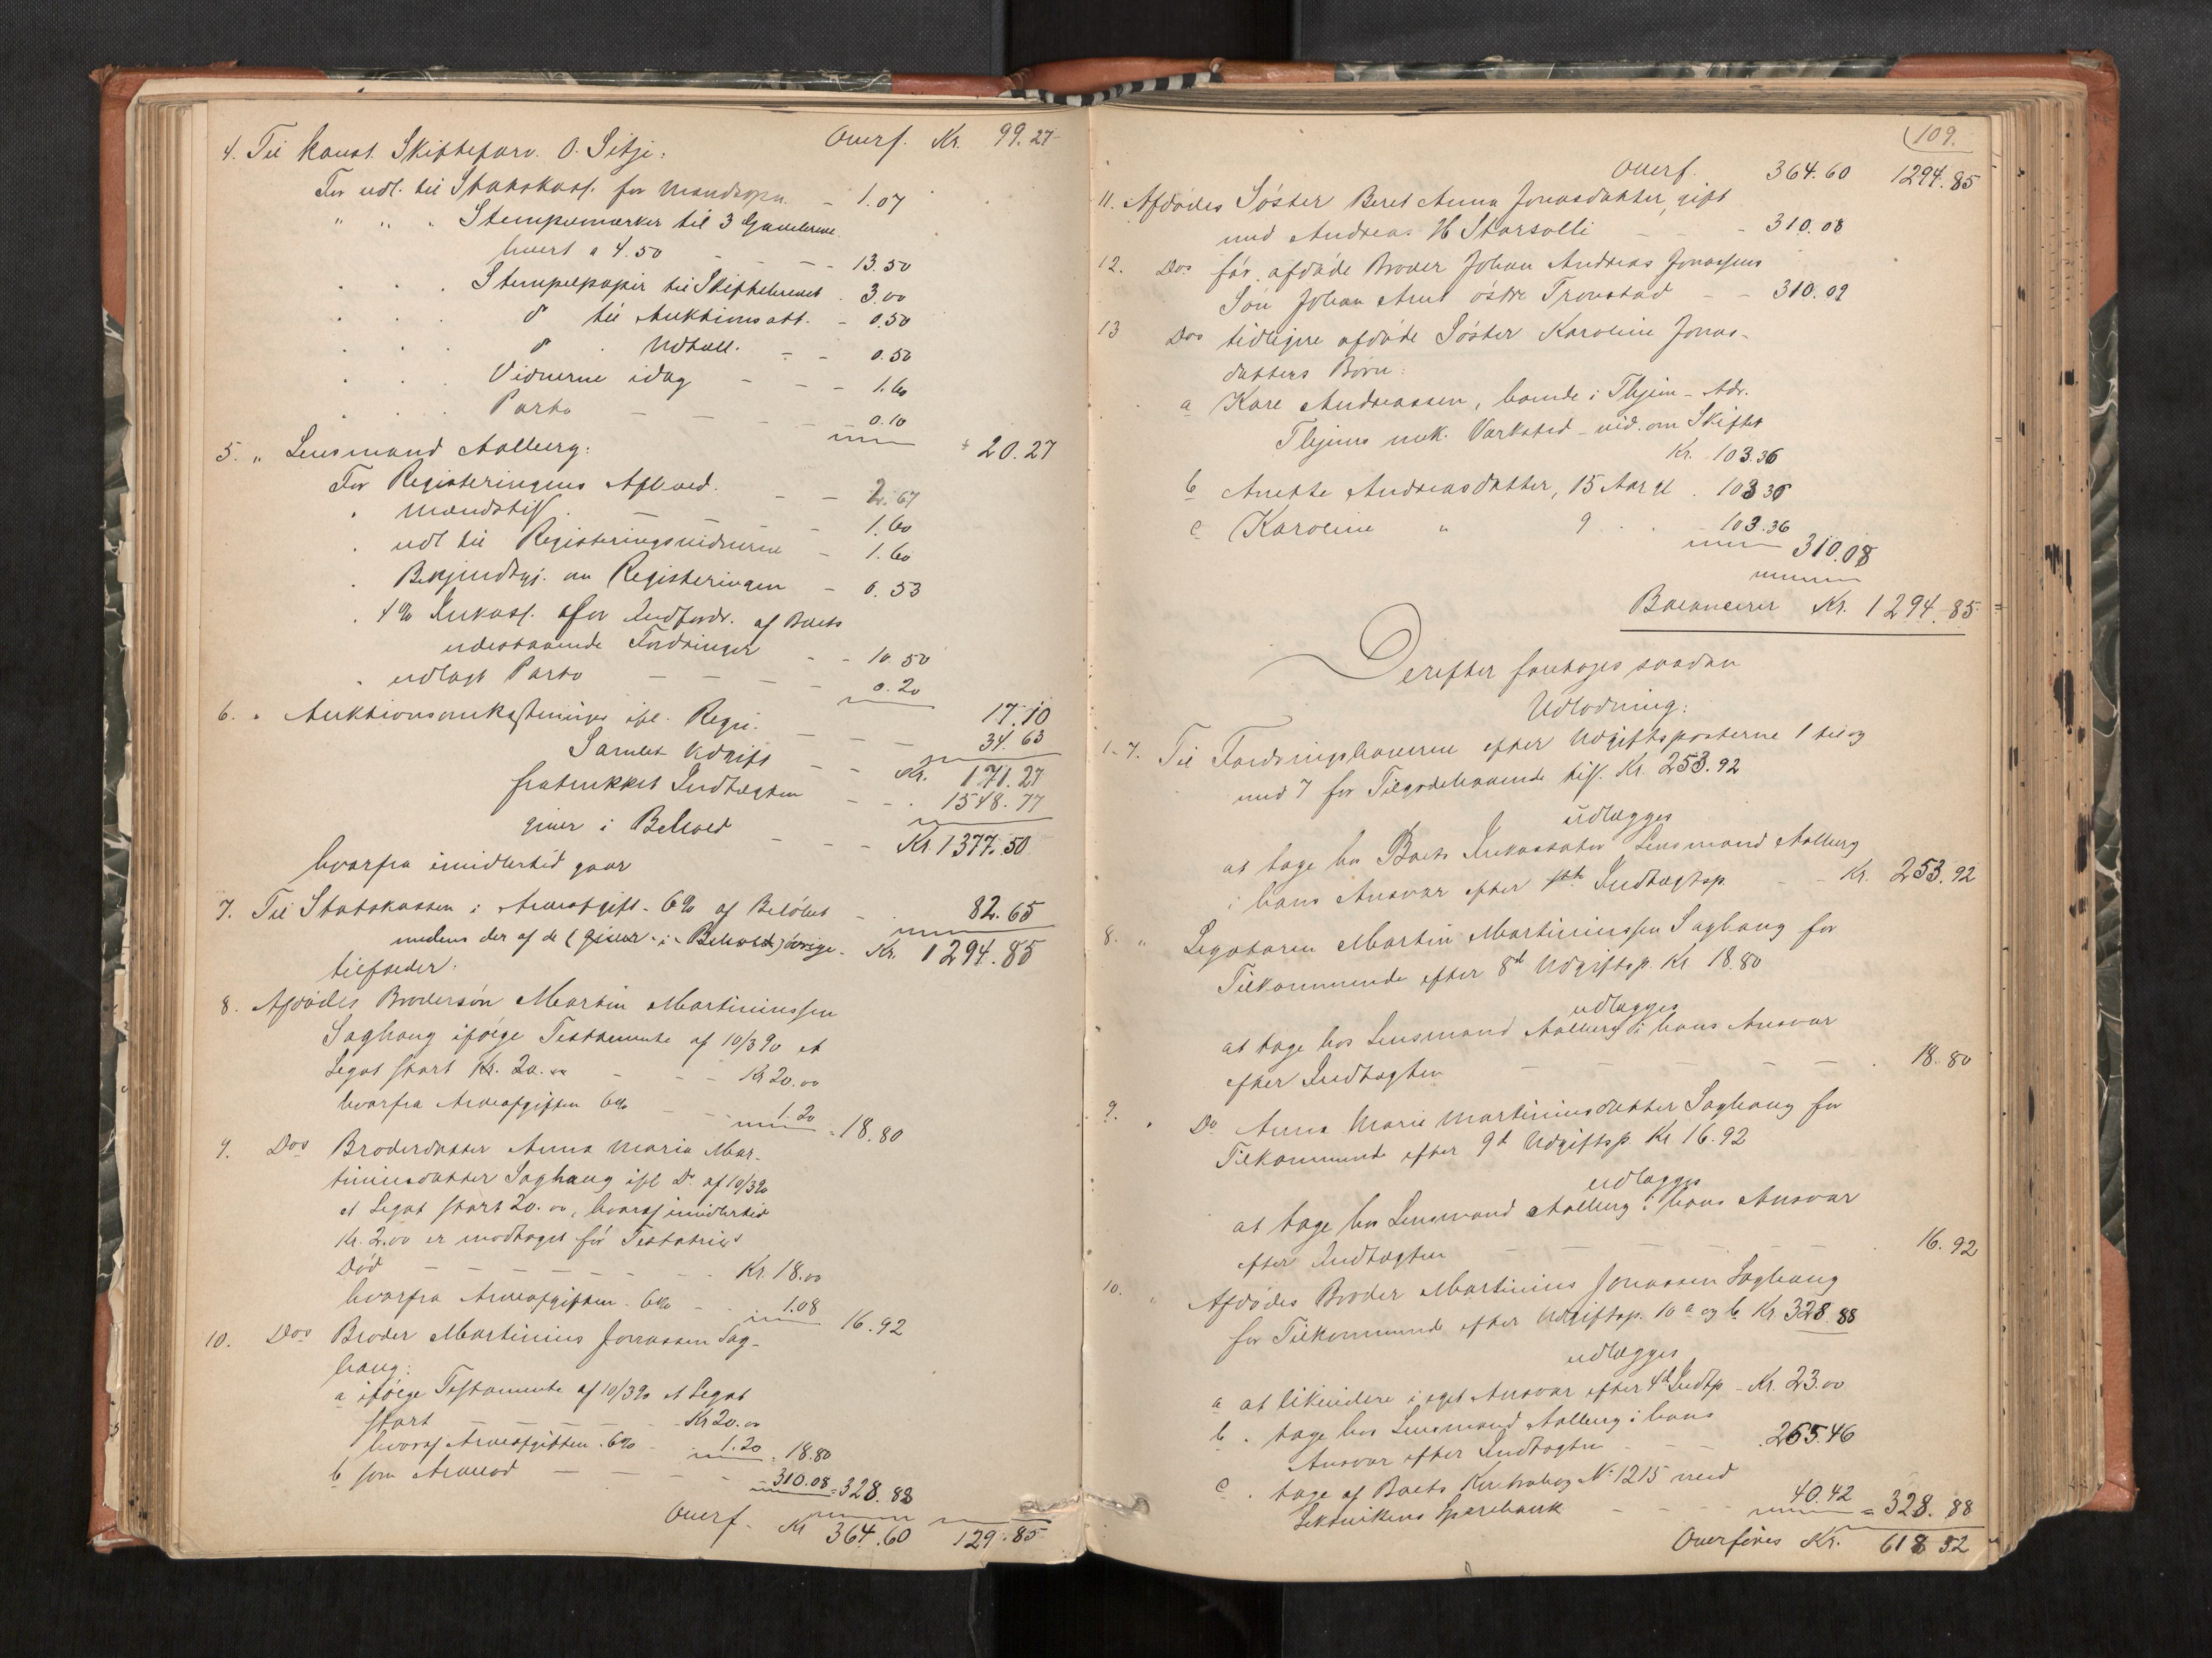 Overf. Kr. 99.27
4. Til konst. Skifteforv. O. Sitje:
For udl. til Statskass. for Mandsopn. - 1.07
" " . Stempelmærker til 3 Gavebreve
hvert a 4.50 - - - 13.50
. . . Stempelpapir til Skiftebrevet . 3.00
. . . d til Auktionsatt. - 0.50
. . . d . Udtell. - - 0.50
. . . Vidnerne idag - - - 1.60
. . . Porto - - - - 0.10
20.27
5. " Lensmand Aalberg:
For Registeringens Afhold. - - 2.67
. Mandstill. - - - 1.60
. udl til Registeringsvidnerne - 1.60
. Bekjendtgj. om Registeringen - 0.53
. 4% Inkass. for Indfordr. af Boets
udestaaende Fordringer - - 10.50
. udlagt Porto - - - - 0.20
17.10
6. . Auktionsomkostninger ifl. Regn. - - - 34.63
Samlet Udgift - - Kr. 171.27
fratrukket Indtægten - - . 1548.77
giver i Behold - - - Kr. 1377.50
hvorfra imidlertid gaar
7. Til Statskassen i Arveafgift - 6% af Beløbet - . 82.65
medens der af de (giver i Behold) øvrige - Kr. 1294.85
tilfalder:
8. Afdødes Brodersøn Martin Martinussen
Saghaug ifølge Testamente af 10/3 90 et
Legat stort Kr. 20.00 - - - Kr 20.00
hvorfra Arveafgiften 6% - - 1.20 = 18.80
9. Dos Broderdatter Anna Maria Mar-
tinusdatter Saghaug ifl Do af 10/3 90
et Legat stort 20.00, hvoraf imidlertid
Kr. 2.00 er modtaget før Testatrices
Død - - - - - - Kr. 18.00
hvorfra Arveafgiften 6% - . 1.08 16.92
10. Dos Broder Martinius Jonassen Sag-
haug:
a ifølge Testamente af 10/3 90 et Legat
stort - - - - Kr 20.00
hvoraf Arveafgiften 6% - 1.20 = 18.80
b som Arvelod - - - - 310.08 = 328.88
Overf. Kr 364.60 129.85
109.
Overf. 364.60 1294.85
11. Afdødes Søster Beret Anna Jonasdatter, gift
med Andreas H Storsolli - - - 310.08
12. Dos før afdøde Broder Johan Andreas Jonassens
Søn Johan Arnt østre Tronstad - - 310.09
13 Dos tidligere afdøde Søster Karoline Jonas-
datters Børn:
a Kare Andreassen, boende i Thjem - Adr.
Thjems mek. Værksted - vid. om Skiftet
Kr. 103.36
b Anette Andreasdatter, 15 Aar gl . 103 36
c Karoline " 9 . . - 103.36
310.08
Balancerer Kr. 1294.85
Derefter foretoges saadan
Udlodning:
1-7. Til Fordringshaverne efter Udgiftsposterne 1 til og
med 7 for Tilgodehavende till. Kr. 253.92
udlægges
at tage hos Boets Inkassator Lensmand Aalberg
i hans Ansvar efter Indtægtsp. - - Kr. 253.92
8. " Legataren Martin Martinussen Saghaug for
Tilkommende efter 8d Udgiftsp. Kr 18.80
udlægges
at tage hos Lensmand Aalberg i hans Ansvar
efter Indtægten - - - - - . 18.80
9. . Do Anna Marie Martiniusdatter Saghaug for
Tilkommende efter 9d Udgiftsp. Kr 16.92
udlægges
at tage hos Lensmand Aalberg i hans Ansvar
efter Indtægten - - - - - . 16.92
10. " Afdødes Broder Martinius Jonassen Saghaug
for Tilkommende efter Udgiftsp. 10 a og b Kr 328.88
udlægges
a at likvidere i eget Ansvar efter 4d Indtp - Kr. 23.00
b . tage hos Lensmand Aalberg i hans
Ansvar efter Indtægten - - - . 265.46
c . tage af Boets Kontrabog No 1215 med
Sparebank - - - - 40.42 = 328.88
Overføres Kr. 618 52